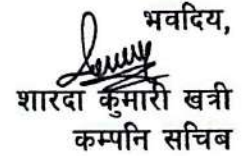 भवदिय,
शारदा कुमारी खत्री
कम्पनि सचिब